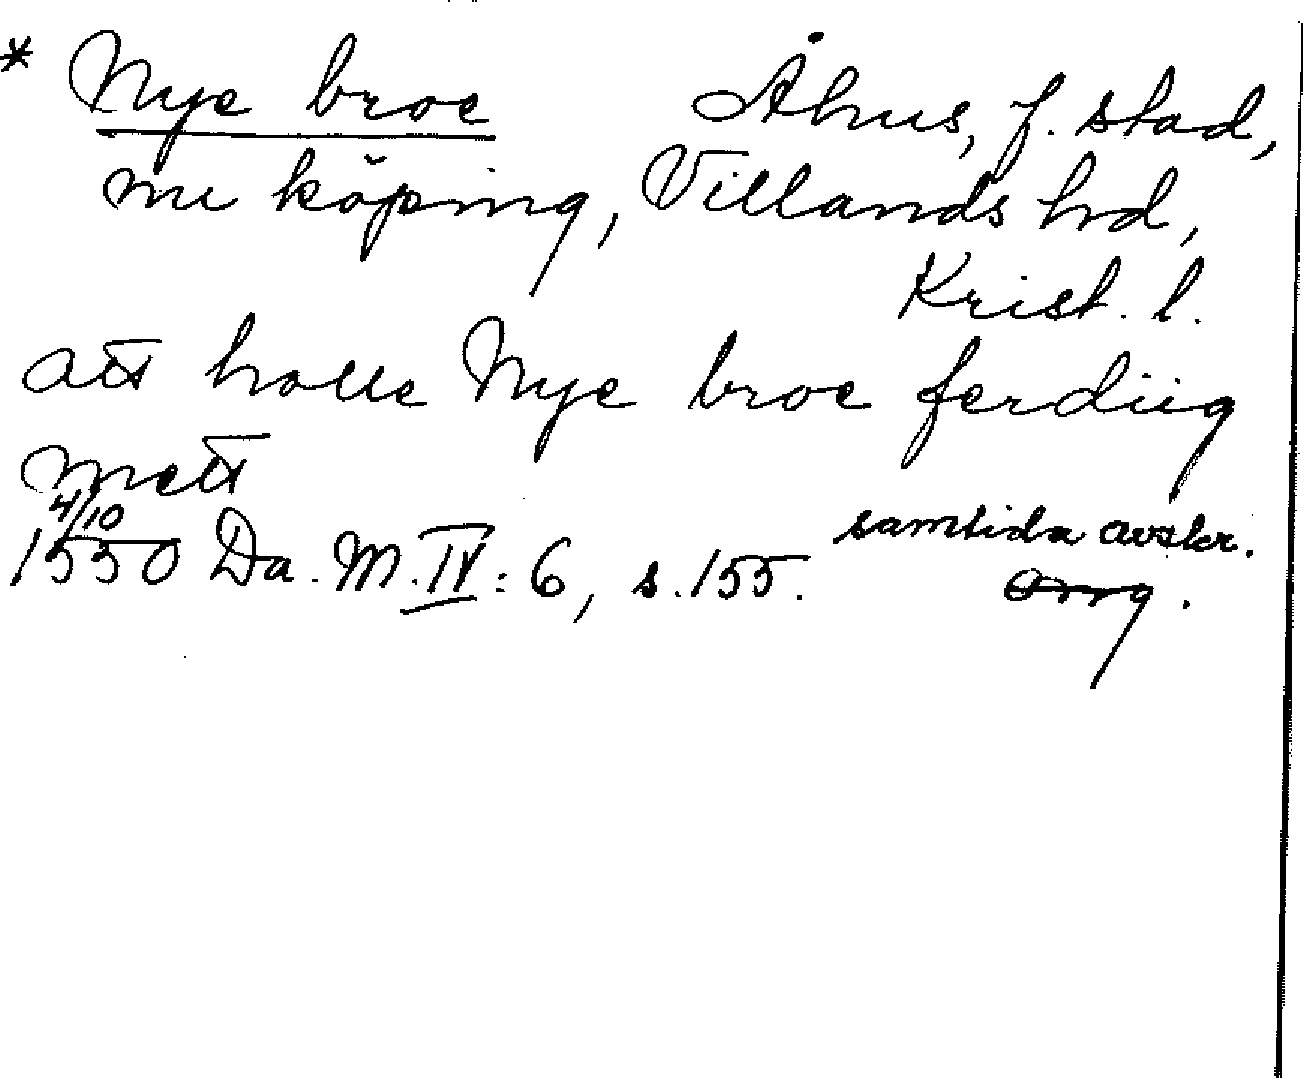 * Nye broe Åhus, f. stad,
nu köping, Villands hd,
Krist. l.
att holle Nye broe ferdiig
mett
4/10 samtida avskr.
1550 Da. M. IV: 6, s. 155. orig.